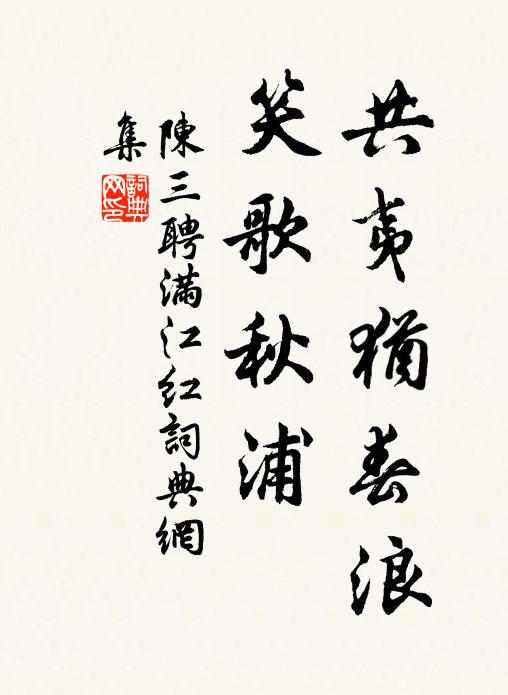 共夷猶春浪
笑歌秋浦
陳三聘滿江紅詞典網
集
詞典网印